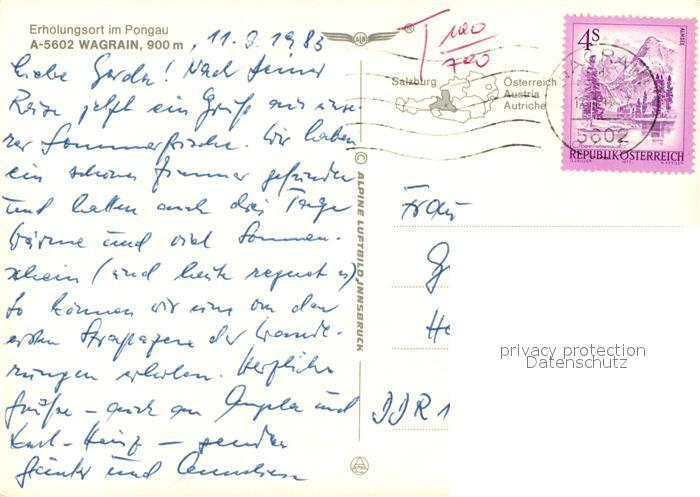 Erholungsort im Pongau
A-5602 WAGRAIN, 900 m
, 11.9.1983
Liebe Gerda! Nach Deiner
Reise jetzt ein Gruß aus unse-
rer Sommerfrische. Wir haben
ein schönes Zimmer gefunden
und hatten auch drei Tage
Wärme und viel Sonnen-
schein (und heute regnet es).
So können wir uns von den
ersten Strapazen der Wande-
rungen erholen. Herzliche
Grüße – auch an Angela und
Karl-Heinz – senden
Günter und Annelies
ALPINE LUFTBILD, INNSBRUCK
T 120
700
Salzburg
Österreich
Austria
Autriche
4S
ALMSEE
WAGRAIN
5602
REPUBLIK ÖSTERREICH
Frau
G
He
DDR 1
privacy protection
Datenschutz